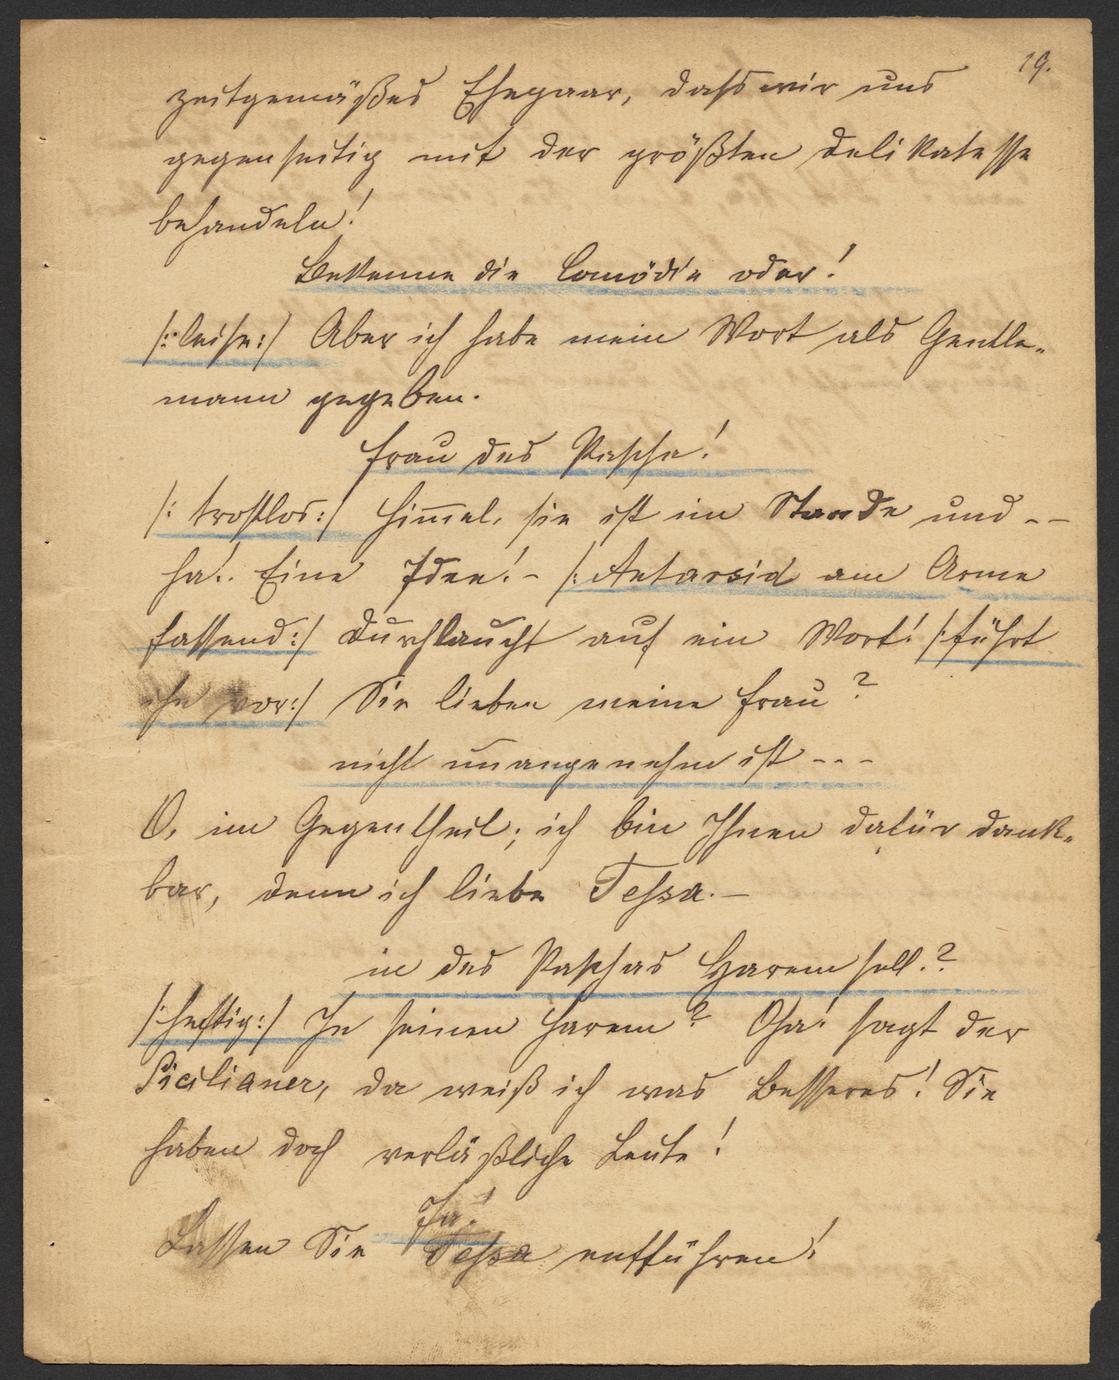 19.
zeitgemäßes Ehepaar, dass wir uns
gegenseitig mit der größten Delikatesse
behandeln!
Bekenne die Comödie oder!
/: leise :/ Aber ich habe mein Wort als Gentle-
mann gegeben.
Frau des Pascha!
/: trostlos :/ Himmel, sie ist im Stande und --
ha!. Eine Idee! - /: Antarsid am Arme
fassend :/ Durchlaucht auf ein Wort! /: führt
ihn vor :/ Sie lieben meine Frau?
nicht unangenehm ist ---
O, im Gegentheil; ich bin Ihnen dafür dank-
bar, denn ich liebe Tessa. -
in des Paschas Harem soll.?
/: heftig :/ In seinen Harem? Oha! sagt der
Sicilianer, da weiß ich was Besseres! Sie
haben doch verläßliche Leute!
Ja!
Lassen Sie Tessa entführen!